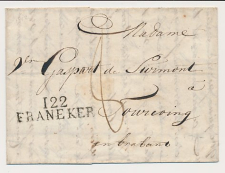 Madame
Gaspart de Surmont
a
Tourcoing
en brabant
122
FRANEKER